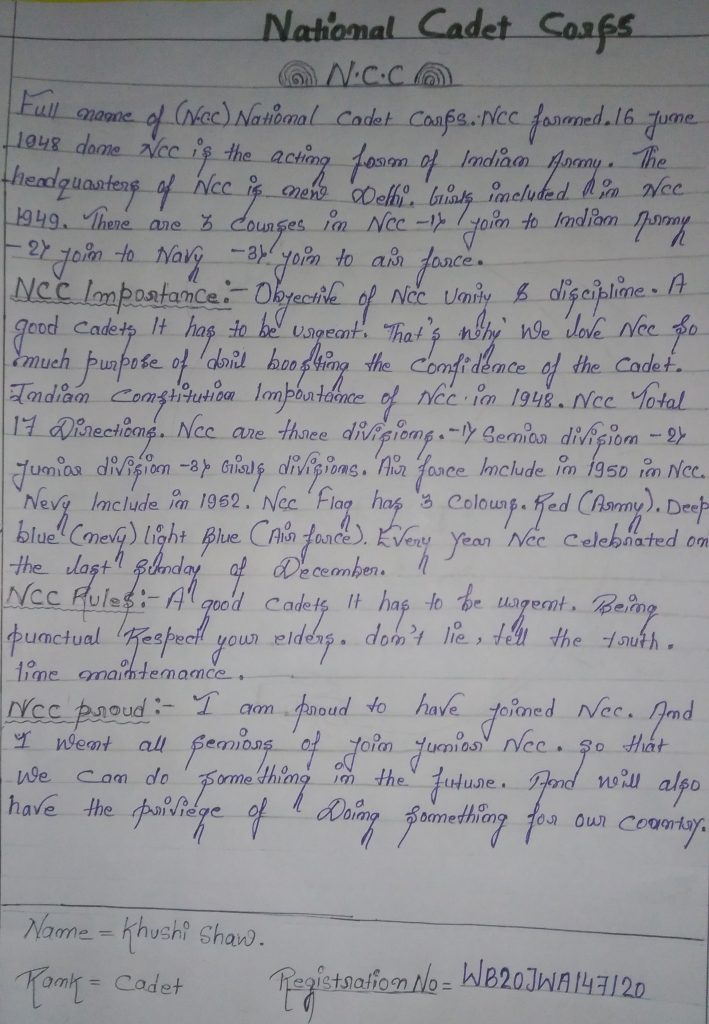 National Cadet Corps
N.C.C
Full name of (Ncc) National Cadet Corps. Ncc formed. 16 June
1948 done Ncc is the acting form of Indian Army. The
headquarters of Ncc is new Delhi. Girls included in Ncc
1949. There are 3 Courses in Ncc -1) join to Indian Army
-2) join to Navy -3) join to air force.
NCC Importance:- Objective of Ncc Unity & discipline. A
good cadets It has to be urgent. That's why we love Ncc so
much purpose of drill boosting the Confidence of the Cadet.
Indian Constitution Importance of Ncc in 1948. Ncc Total
17 Directions. Ncc are three divisions. -1) Senior division -2)
Junior division -3) Girls divisions. Air force Include in 1950 in Ncc.
Nevy Include in 1952. Ncc Flag has 3 Colours. Red (Army). Deep
blue (nevy) light Blue (Air force). Every year Ncc celebrated on
the last Sunday of December.
NCC Rules:- A good cadets It has to be urgent. Being
punctual Respect your elders. don't lie, tell the truth.
time maintenance.
NCC proud:- I am proud to have joined Ncc. And
I went all seniors of join junior Ncc. so that
we can do something in the future. And will also
have the priviege of Doing something for our country.
Name = Khushi Shaw.
Rank = Cadet Registration No = WB20JWA147120